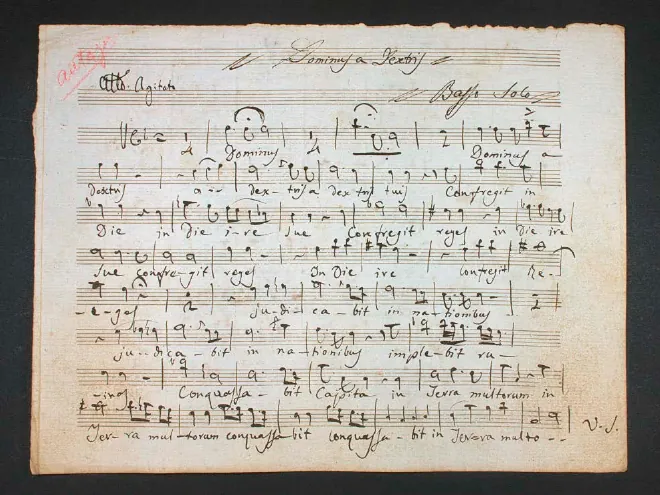 Dominus a Dextris
All.o Agitato
Basso Solo
Dominus Dominus a
Dextris a - dextris a dextris tuis Confregit in
Die in Die i-re Sue Confregit reges in Die ire
Sue confre-git reges In Die ire confregit Re-
- e-ges ju-di-ca-bit in na-tionibus
ju--dica-bit in na-tionibus imple-bit ru-
-inas Conquassa-bit Capita in Terra multorum in
Ter-ra mul-torum conquassa-bit conquassa-bit in Terra multo--
V.S.